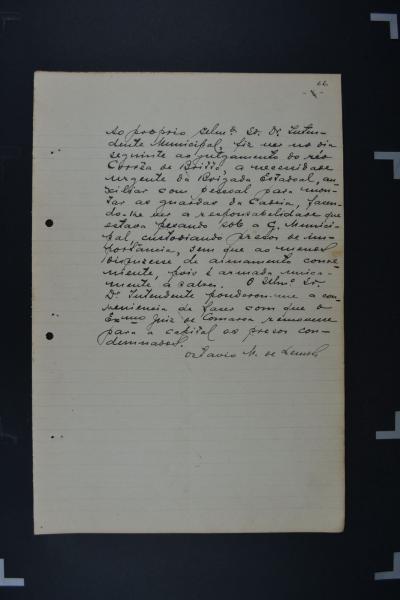 66
Ao proprio Illmº Sr. Dr. Inten-
dente Municipal, fiz ver no dia
seguinte ao julgamento do réo
Corrêa de Britto, a necessidade
urgente da Brigada Estadoal, au-
xiliar com pessoal para mon-
tar as guardas da Cadeia, fazen-
do-lhe ver a responsabilidade que
estava pesando sob a G. Munici-
pal, custodiando presos de im-
portancia, sem que ao menos
dispuzesse de armamento conve-
niente, pois é armada unica-
mente á sabre. O Illmº Sr.
Dr. Intendente ponderou-me a con-
veniencia de fazer com que o
Exmo Juiz de Comarca removesse
para a capital os presos con-
demnados.
Octavio M. de Lemos